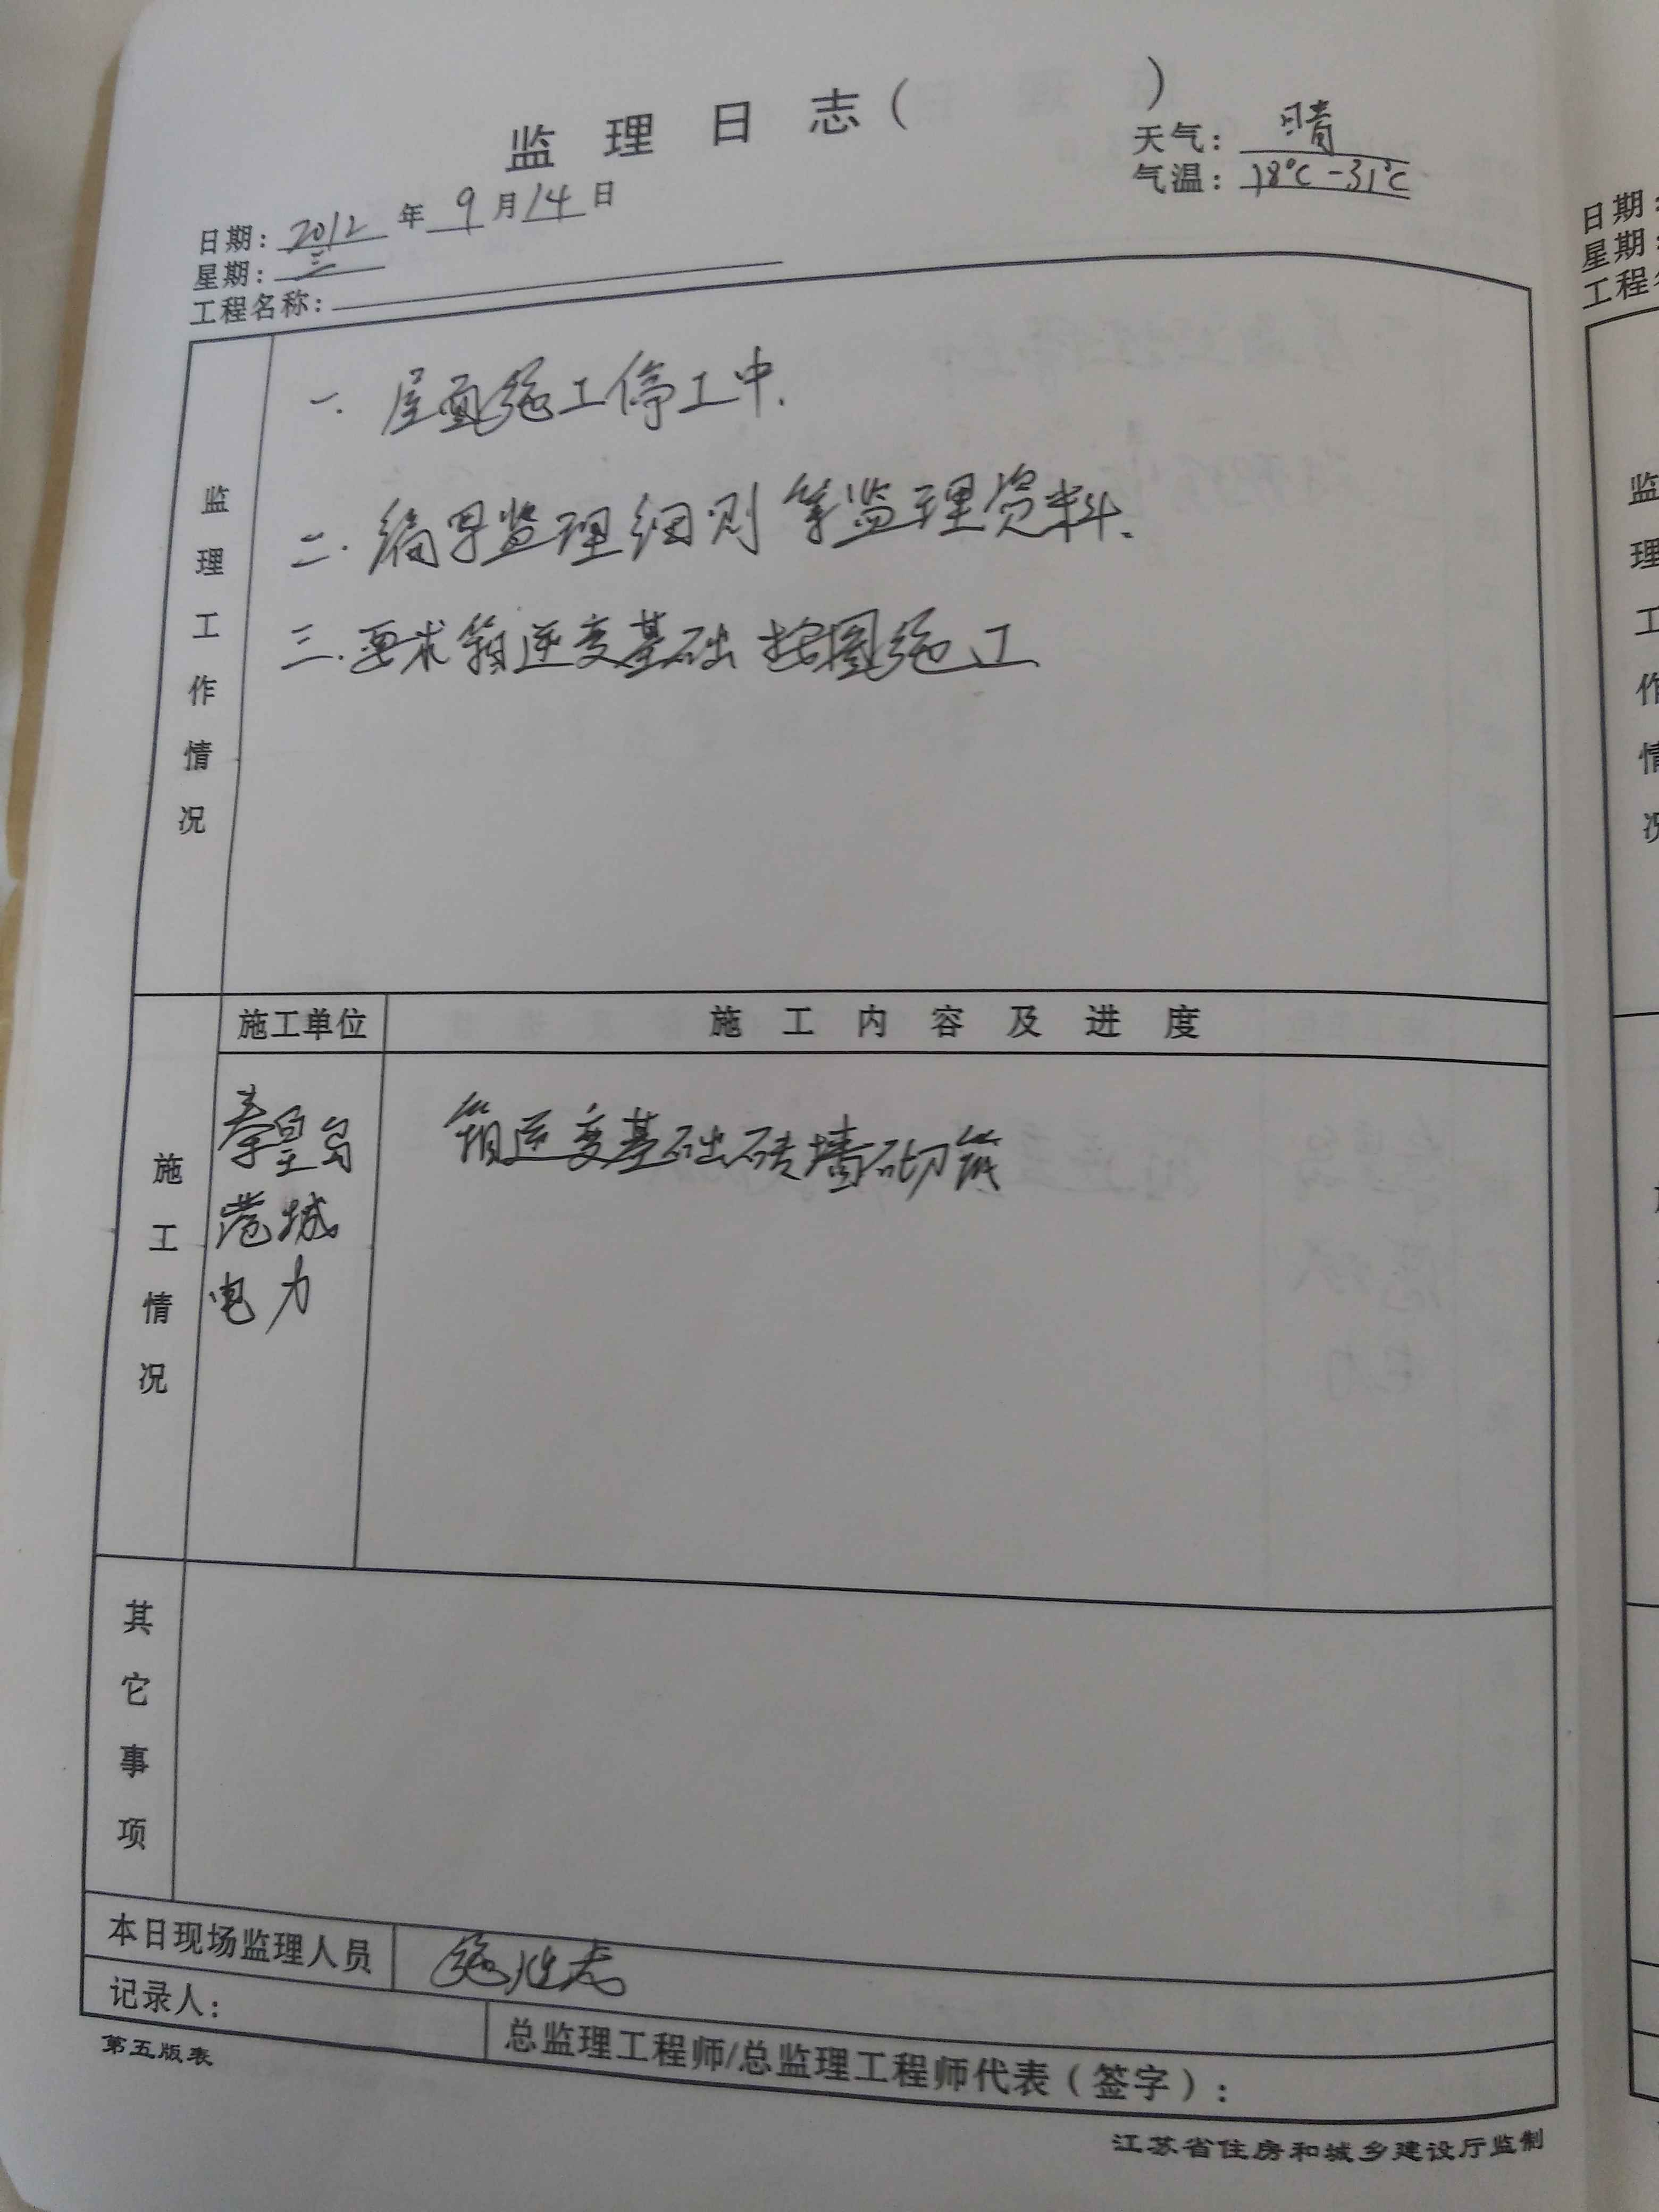 监理日志（ ）
天气：晴
气温：18℃-31℃
日期：2012年9月14日
星期：三
工程名称：
监理工作情况
一. 屋面施工停工中.
二. 编写监理细则等监理资料.
三. 要求箱逆变基础按图施工
施工情况
施工单位
施工内容及进度
秦皇岛
港城
电力
箱逆变基础砖墙砌筑
其它事项
本日现场监理人员
记录人：
总监理工程师/总监理工程师代表（签字）：
第五版表
江苏省住房和城乡建设厅监制
日期：
星期：
工程